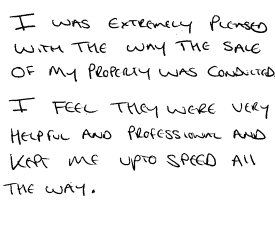 I WAS EXTREMELY PLEASED
WITH THE WAY THE SALE
OF MY PROPERTY WAS CONDUCTED
I FEEL THEY WERE VERY
HELPFUL AND PROFESSIONAL AND
KEPT ME UPTO SPEED All
THE WAY.